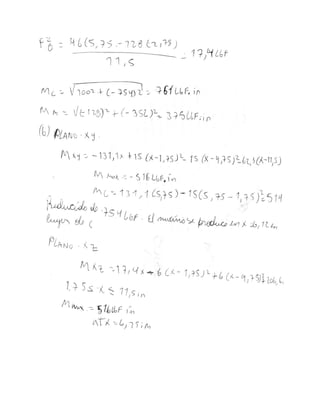 F_B^z = 46(5,75 - 728(2,75) = 17,4 Lbf
11,5
Mc = √700² + (-754)² = 761 LbF.in
MA = √(128)² + (-352)² = 375 LbF.in
(b) PLANO - xy.
Mxy = -131,1x + 15 (x-1,75)² - 15 (x-9,75)² - 62,3(x-11,5)
Mmax = -516 LbF.in
Mc = 131,1(5,75) - 15(5,75-1,75)² = 514
Reducido de 754 LbF. El máximo se produce en x = 6,12 in
lugar de C
PLANO - XZ
MXZ = 17,4x + 6 (x-1,75)² + 6 (x-9,75)²
1,75 ≤ x ≤ 11,5 in
Mmax = 516 LbF in
at x = 6,